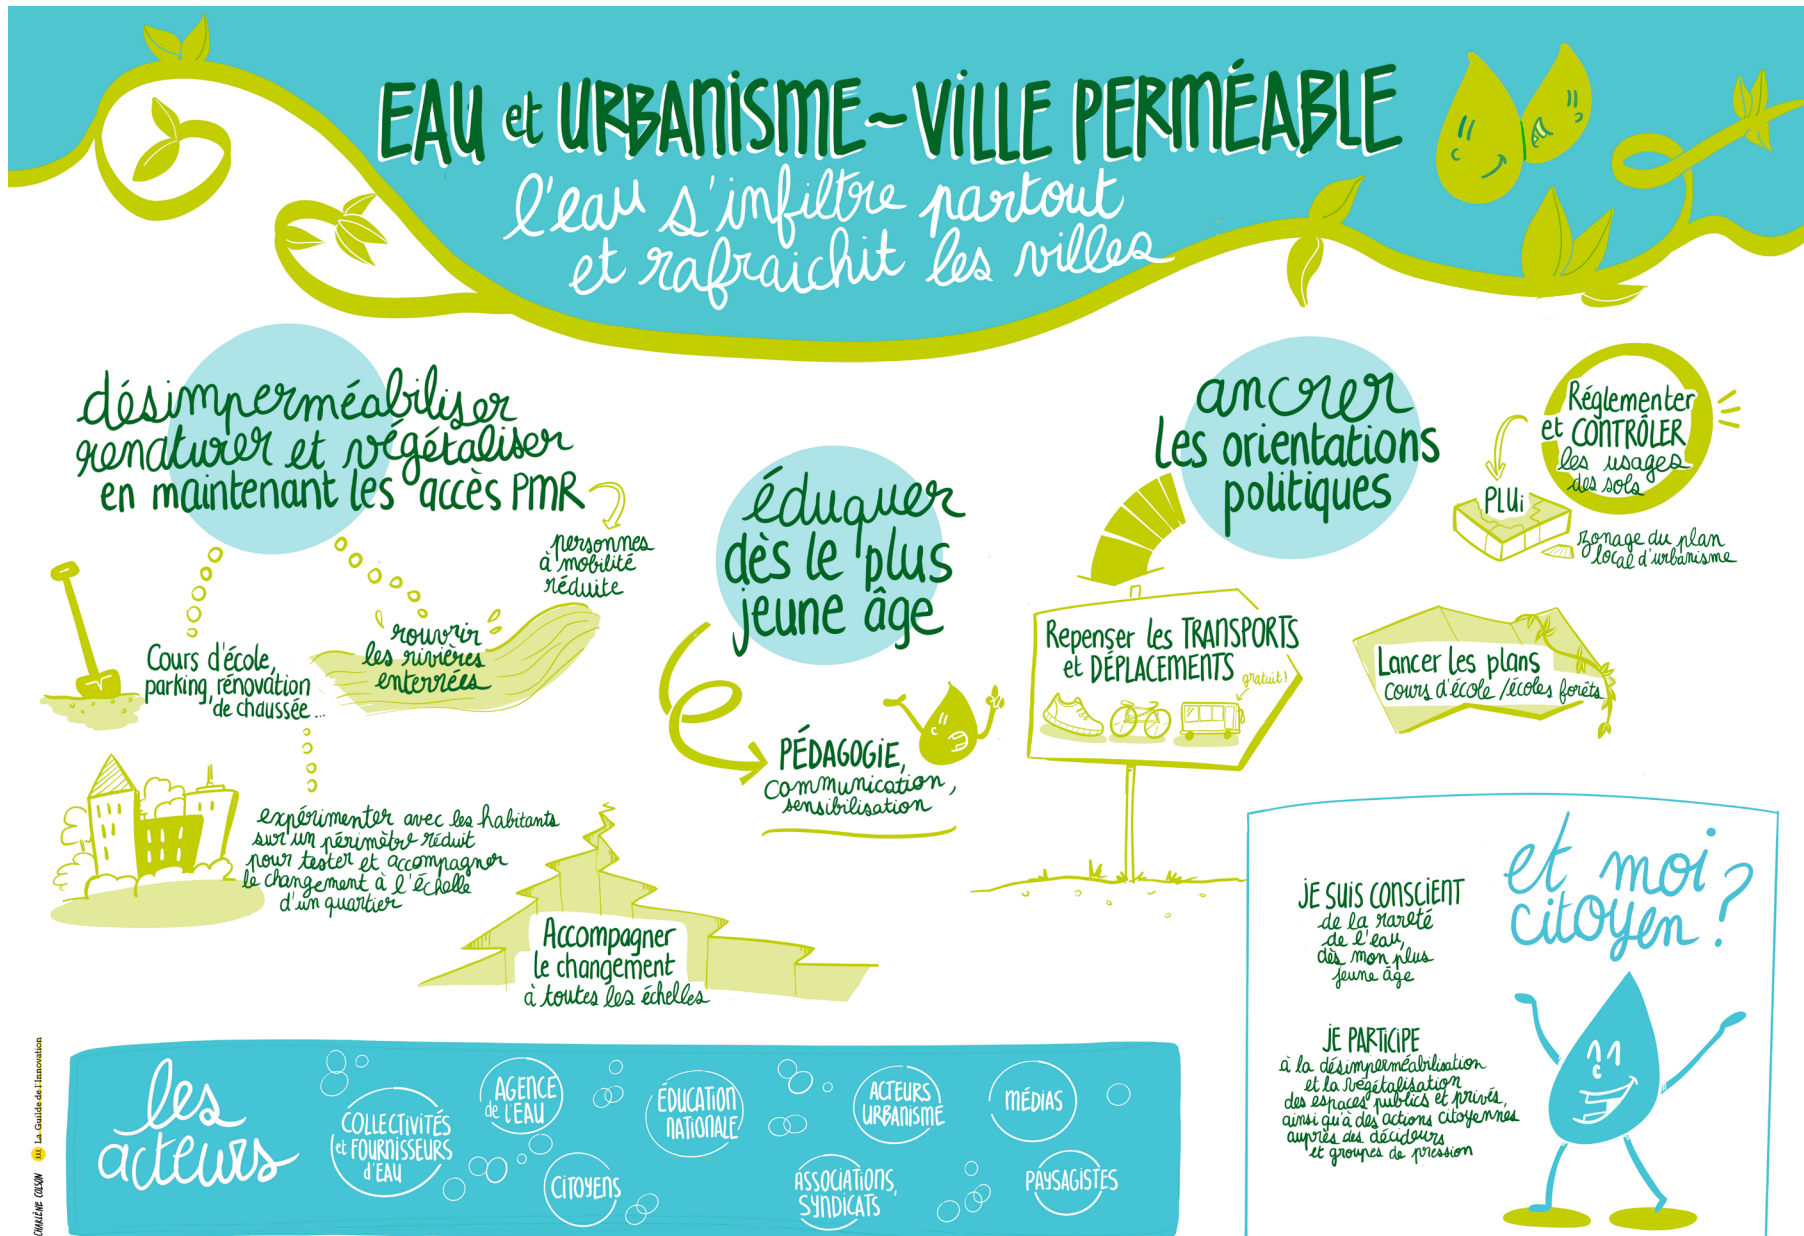 EAU et URBANISME ~ VILLE PERMÉABLE
l'eau s'infiltre partout
et rafraichit les villes
désimperméabiliser
renaturer et végétaliser
en maintenant les accès PMR
personnes
à mobilité
réduite
Cours d'école,
parking, rénovation
de chaussée...
rouvrir
les rivières
enterrées
expérimenter avec les habitants
sur un périmètre réduit
pour tester et accompagner
le changement à l'échelle
d'un quartier
Accompagner
le changement
à toutes les échelles
éduquer
dès le plus
jeune âge
PÉDAGOGIE,
communication,
sensibilisation
ancrer
les orientations
politiques
Réglementer
et CONTRÔLER
les usages
des sols
PLUi
zonage du plan
local d'urbanisme
Repenser les TRANSPORTS
et DÉPLACEMENTS
gratuit!
Lancer les plans
cours d'école / écoles forêts
et moi
citoyen ?
JE SUIS CONSCIENT
de la rareté
de l'eau,
dès mon plus
jeune âge
JE PARTICIPE
à la désimperméabilisation
et la végétalisation
des espaces publics et privés,
ainsi qu'à des actions citoyennes
auprès des décideurs
et groupes de pression
les
acteurs
COLLECTIVITÉS
et FOURNISSEURS
d'EAU
AGENCE
de l'EAU
CITOYENS
ÉDUCATION
NATIONALE
ACTEURS
URBANISME
ASSOCIATIONS,
SYNDICATS
MÉDIAS
PAYSAGISTES
CHARLÈNE COLSON La Guilde de l'Innovation